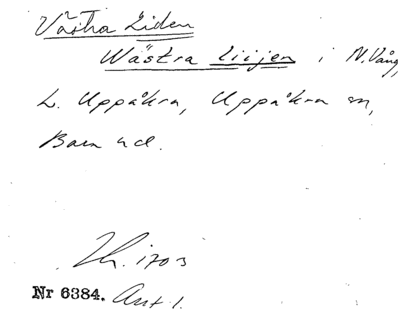 Västra Liden
Wästra Liijen i N. Vång,
L. Uppåkra, Uppåkra sn,
Bara hd.
Lh. 1703
Nr 6384. Avt 1.